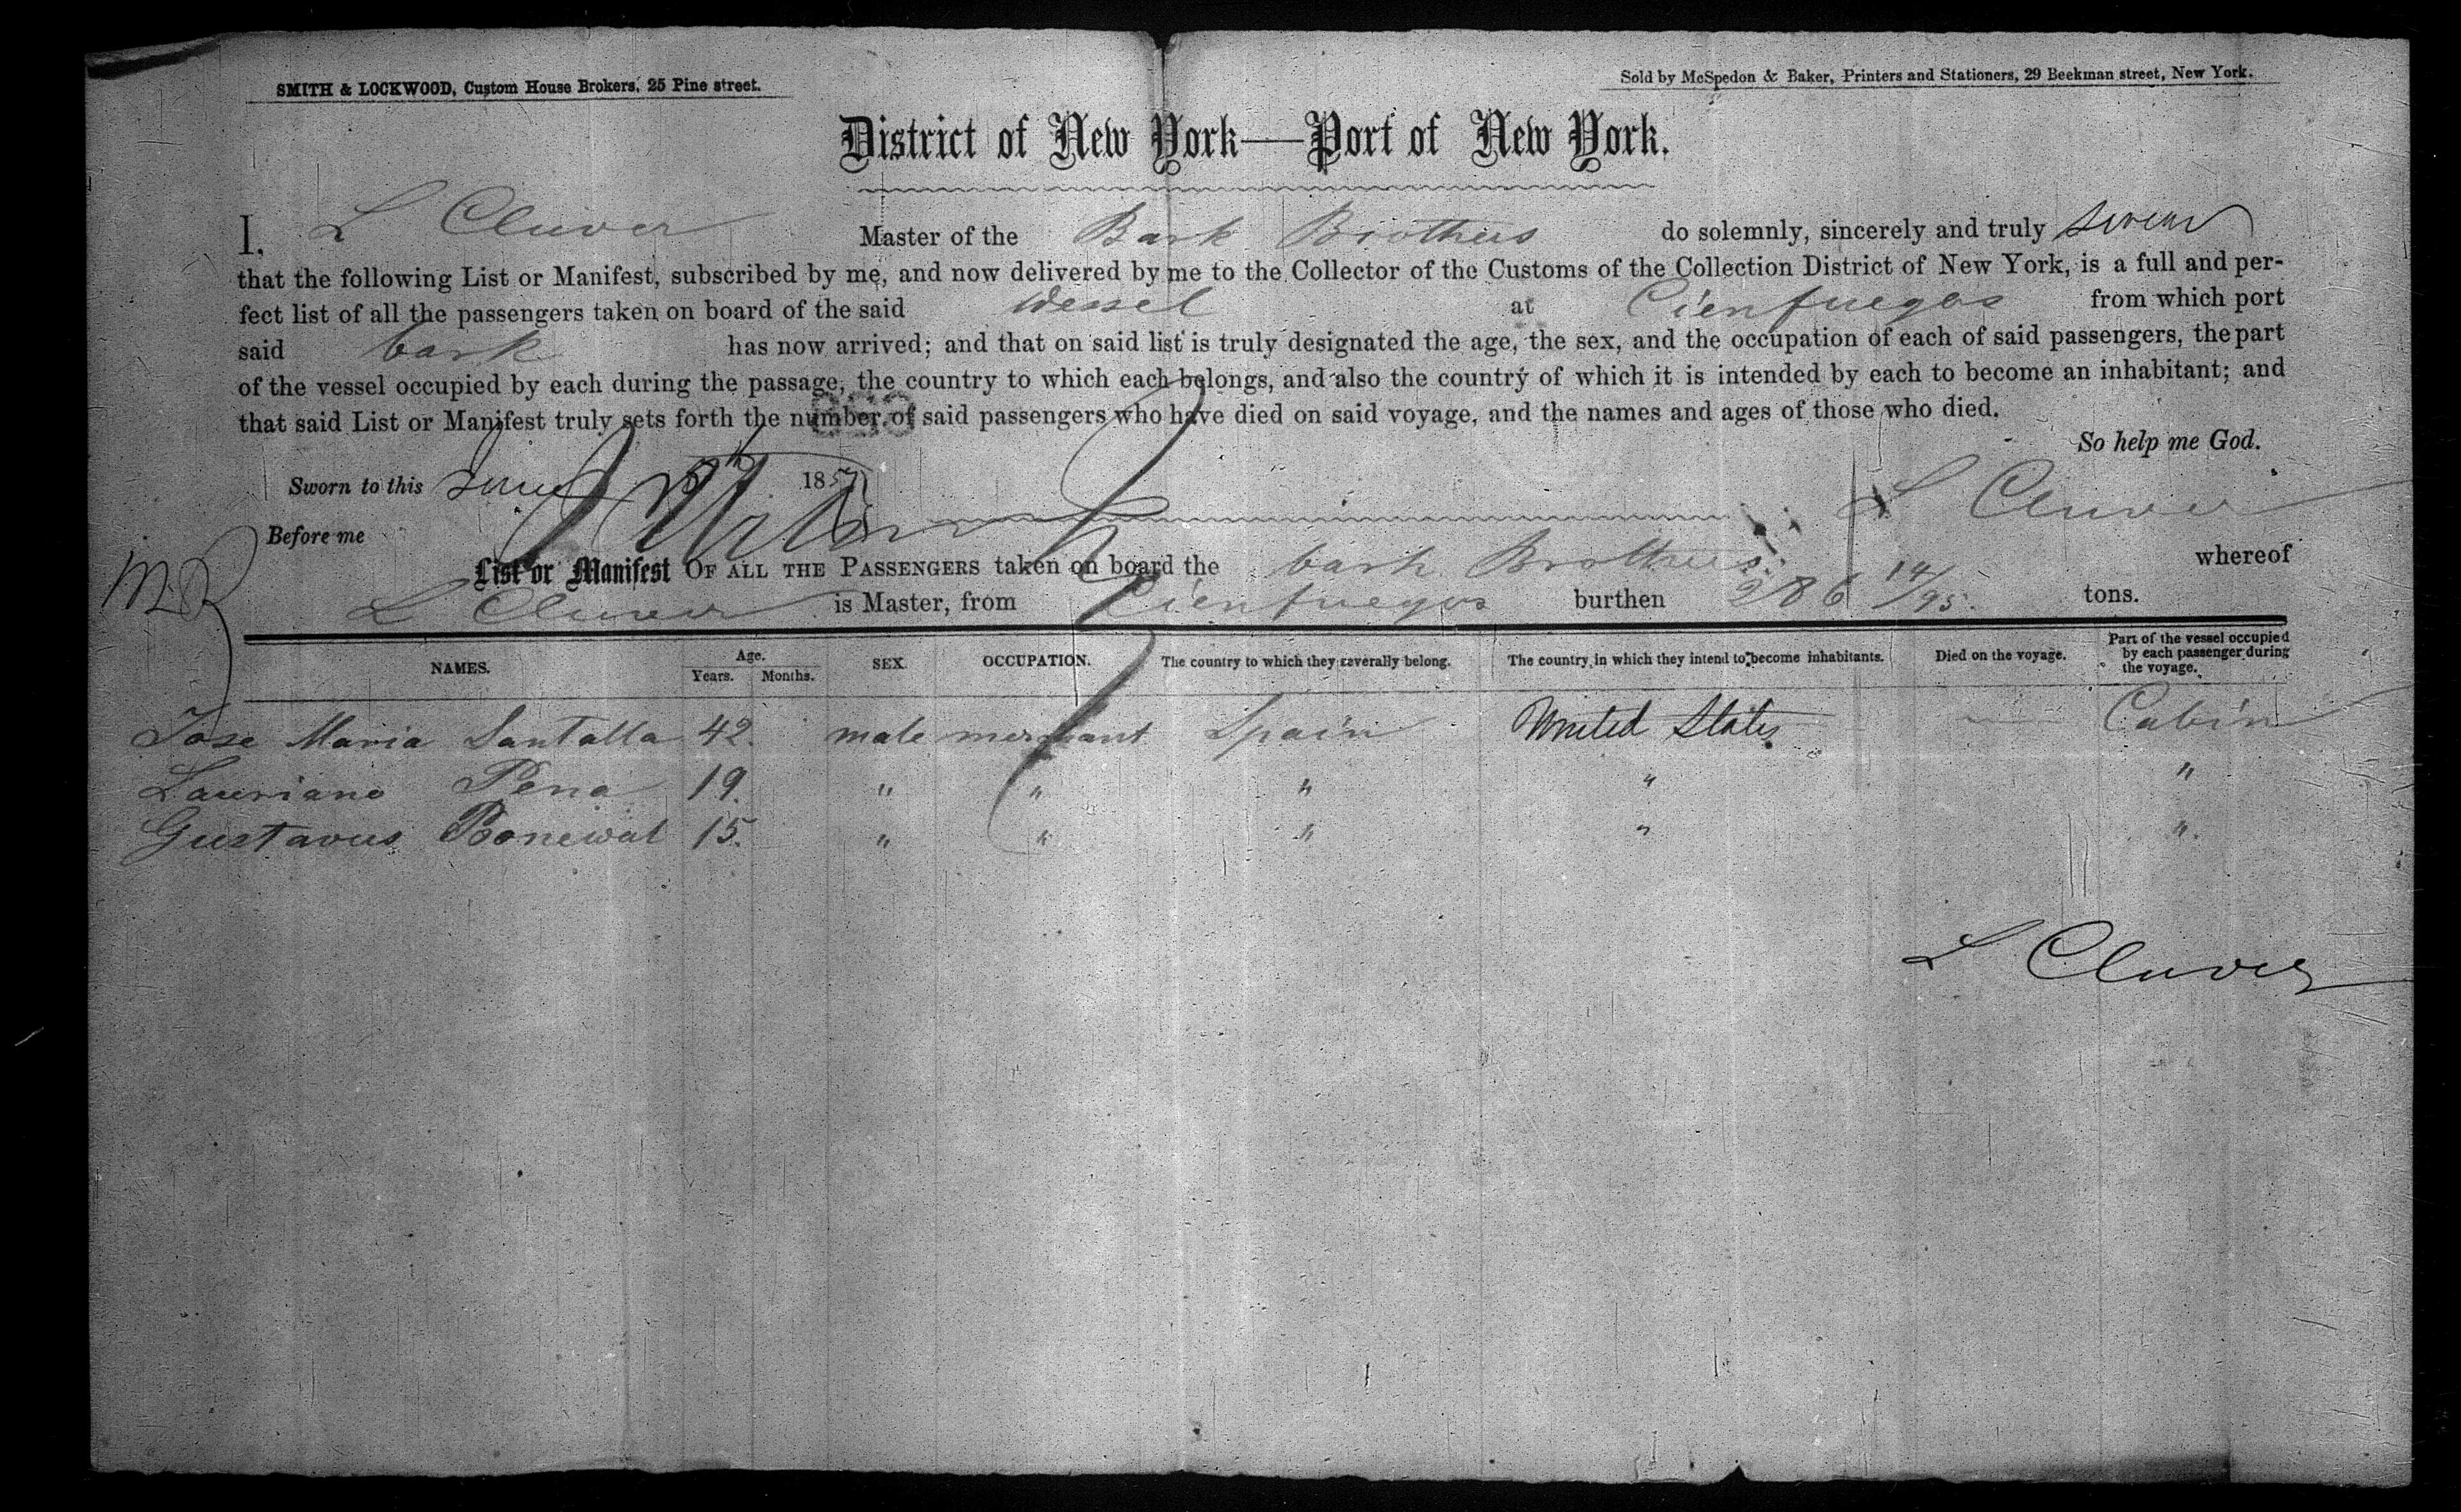 SMITH & LOCKWOOD, Custom House Brokers, 25 Pine street.
Sold by McSpedon & Baker, Printers and Stationers, 29 Beekman street, New York.
District of New York—Port of New York.
I, L Cluver Master of the Bark Brothers do solemnly, sincerely and truly swear
that the following List or Manifest, subscribed by me, and now delivered by me to the Collector of the Customs of the Collection District of New York, is a full and per-
fect list of all the passengers taken on board of the said vessel at Cienfuegos from which port
said bark has now arrived; and that on said list is truly designated the age, the sex, and the occupation of each of said passengers, the part
of the vessel occupied by each during the passage, the country to which each belongs, and also the country of which it is intended by each to become an inhabitant; and
that said List or Manifest truly sets forth the number of said passengers who have died on said voyage, and the names and ages of those who died.
So help me God.
Sworn to this June 1857 L Cluver
Before me
List or Manifest OF ALL THE PASSENGERS taken on board the bark Brothers whereof
L Cluver is Master, from Cienfuegos burthen 286 14/95 tons.
NAMES. Age. Years. Months. SEX. OCCUPATION. The country to which they severally belong. The country in which they intend to become inhabitants. Died on the voyage. Part of the vessel occupied by each passenger during the voyage.
Jose Maria Santalla 42. male merchant Spain United States — Cabin
Lauriano Pena 19. " " " " "
Gustavus Bonewal 15. " " " " ".
L Cluver